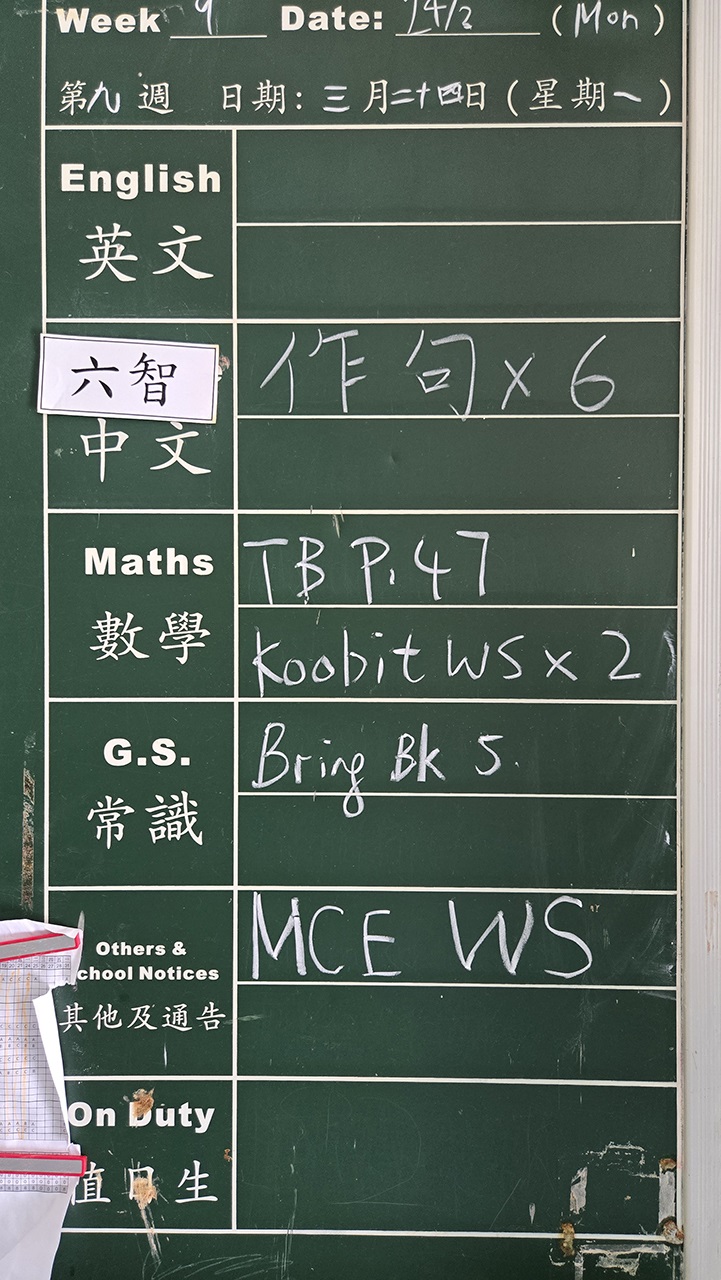 Week 9 Date: 24/3 (Mon)
第九週 日期: 三月二十四日 (星期一)
English
英文
六智
作句 x 6
中文
Maths
TB P.47
數學
Koobit WS x 2
G.S.
Bring Bk 5.
常識
MCE WS
Others &
chool Notices
其他及通告
On Duty
值日生